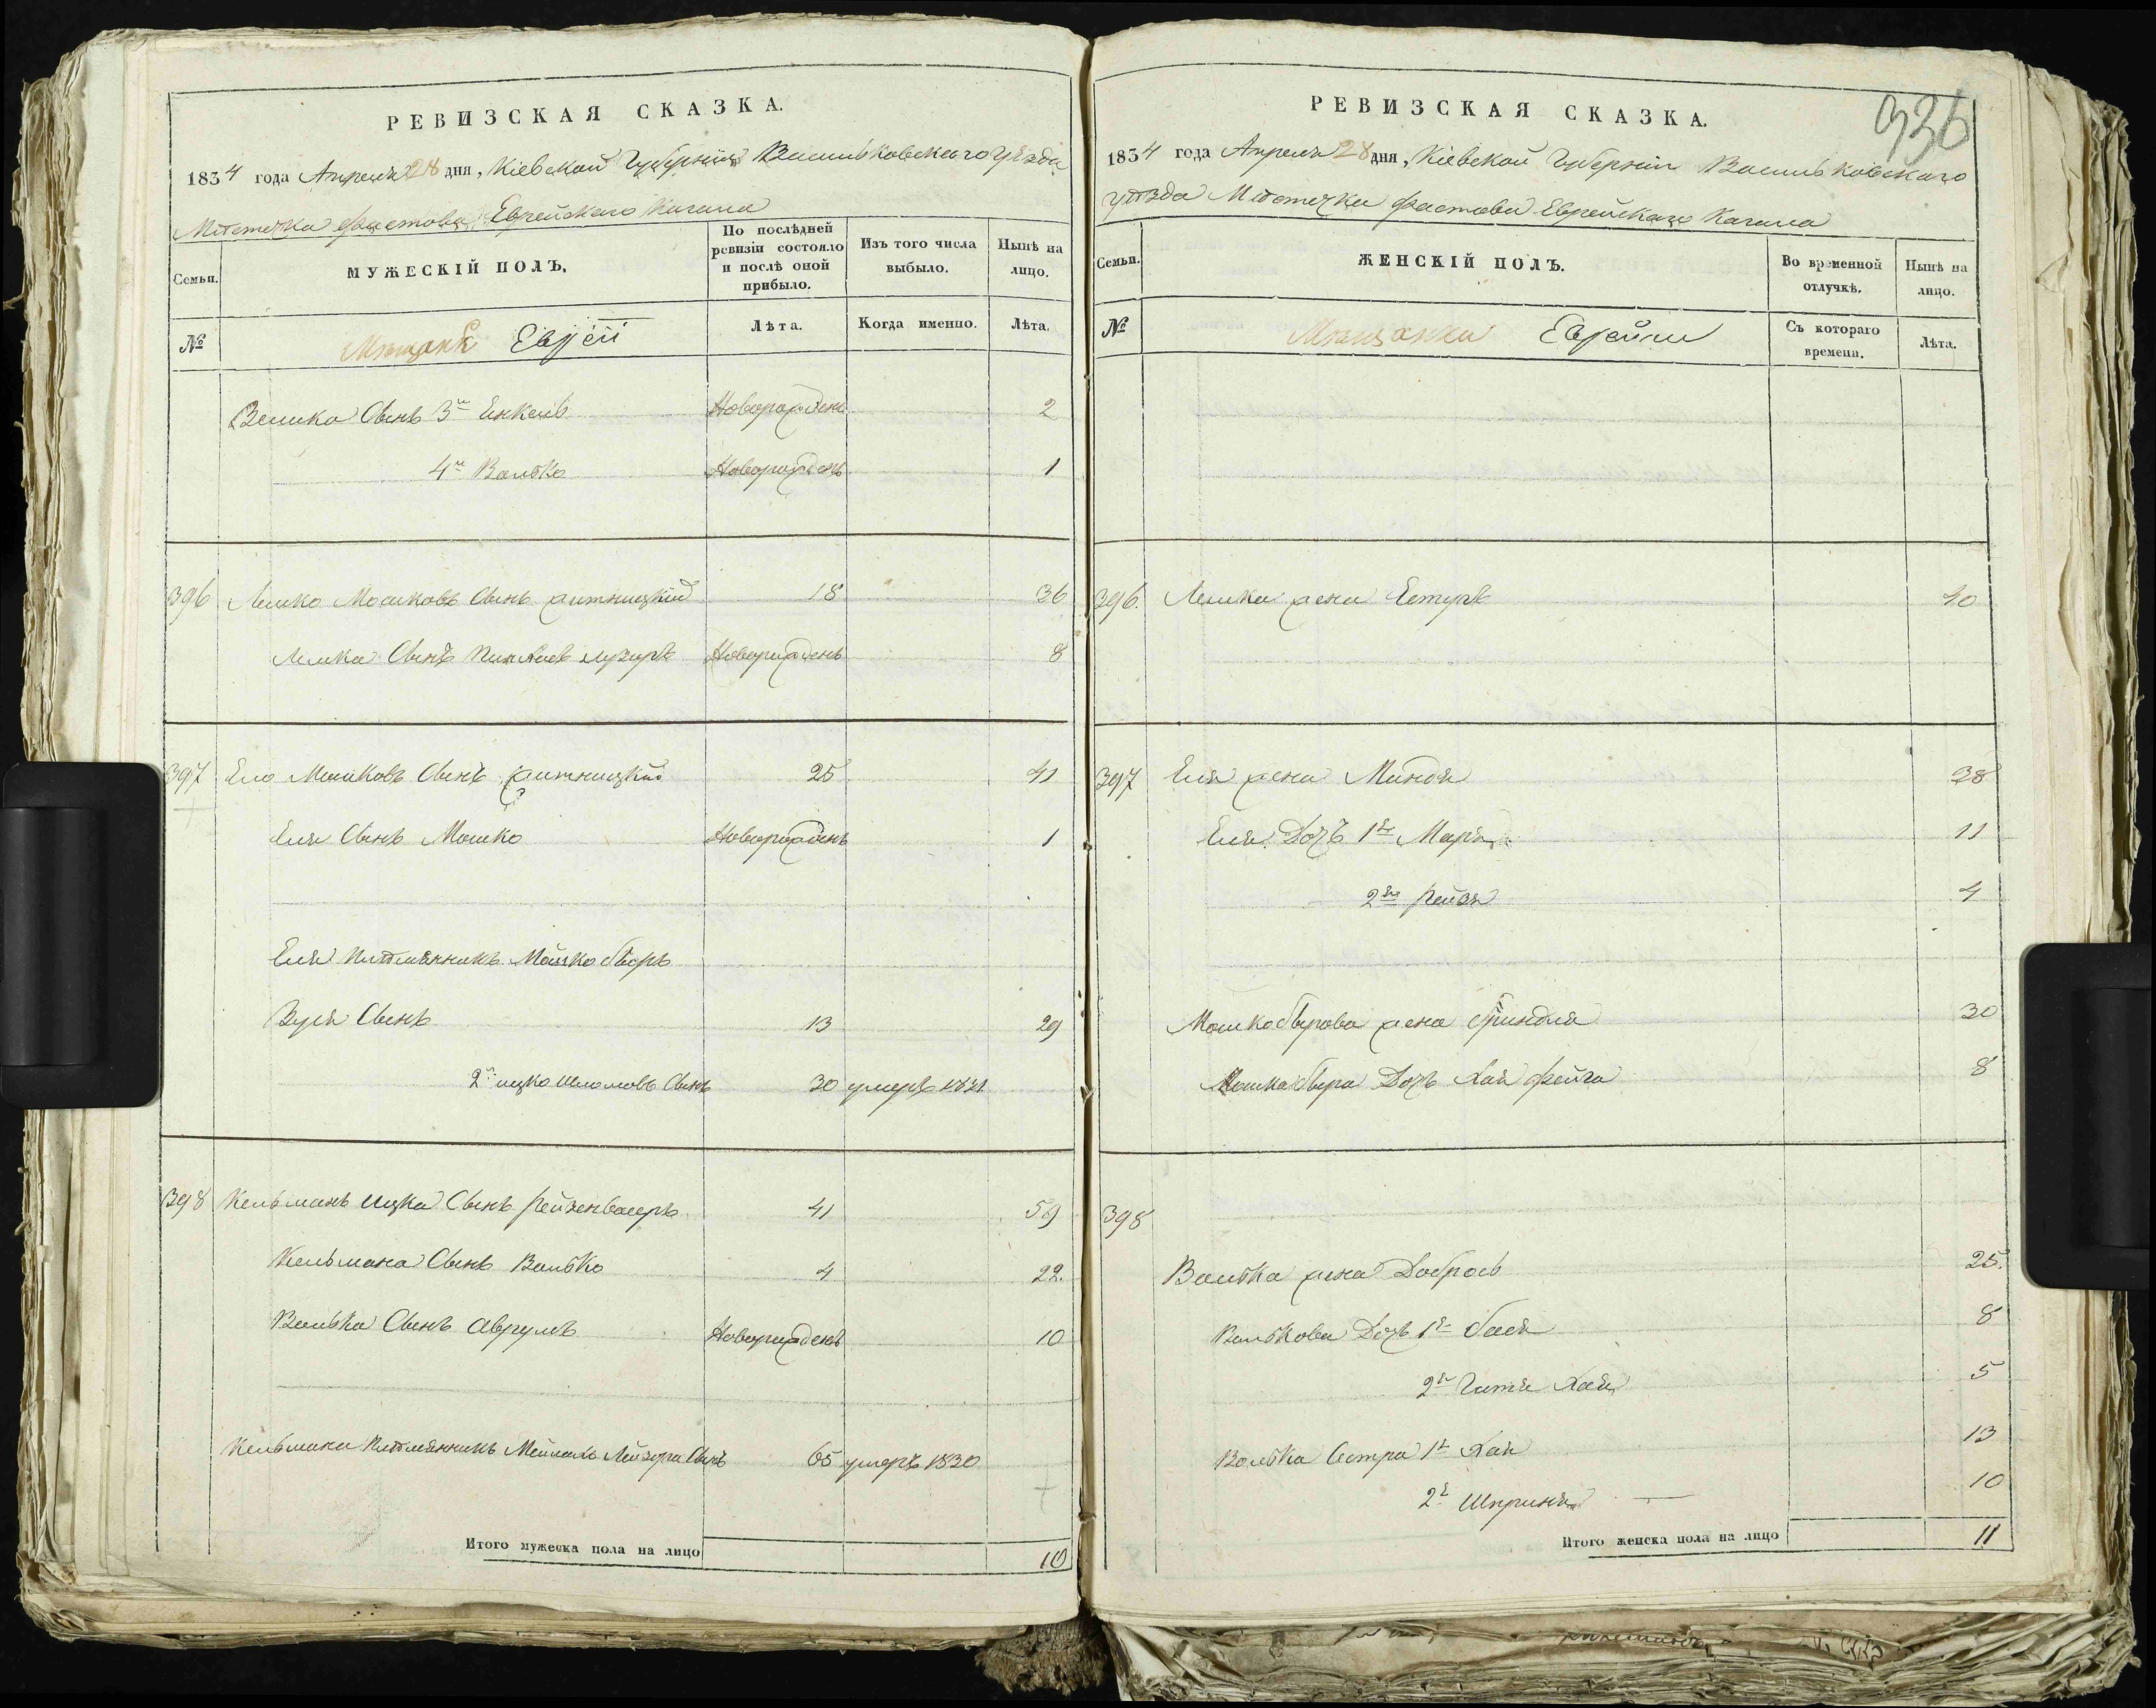 РЕВИЗСКАЯ СКАЗКА.
1834 года Апреля 28 дня, Кіевской Губерніи Васильковского уѣзда
Мѣстечка Фастова Еврейского Кагала
Семьи.
МУЖЕСКІЙ ПОЛЪ.
По послѣдней ревизіи состояло и послѣ оной прибыло.
Изъ того числа выбыло.
Нынѣ на лицо.
№
Мѣщане Евреи
Лѣта.
Когда именно.
Лѣта.
Зелика Сынъ 3й Енкель Новорожденъ 2
4й Волько Новорожденъ 1
396 Лейко Мошковъ Сынъ Житницкій 18 36
Лейка Сынъ Пинхас Новорожденъ 8
397 Ело Мошковъ Сынъ Житницкій 25 41
Еля Сынъ Мошко Новорожденъ 1
Еля племянникъ Мошко Беръ
Зуся Сынъ 13 29
2й Ицко Шломовъ Сынъ 30 умеръ 1831
398 Кельманъ Ицка Сынъ Рейзенвасеръ 41 59
Кельмана Сынъ Волько 4 22.
Волька Сынъ Аврумъ Новорожденъ 10
Кельмана племянникъ Лейзера Сынъ 65 умеръ 1830
Итого мужеска пола на лицо 10
936
РЕВИЗСКАЯ СКАЗКА.
1834 года Апреля 28 дня, Кіевской Губерніи Васильковского
уѣзда Мѣстечка Фастова Еврейского Кагала
Семьи.
ЖЕНСКІЙ ПОЛЪ.
Во временной отлучкѣ.
Нынѣ на лицо.
№
Мѣщанки Еврейки
Съ котораго времени.
Лѣта.
396. Лейка жена Естеръ 40
397 Еля жена Миндя 38
Еля Дочь 1я Марьям 11
2я Рейзя 4
Мошко Берова жена 30
Мошка Бера Дочь Хая Фейга 8
398
Волька жена Добрось 25.
Волькова Дочь 1я Бася 8
2я Гитя Хая 5
Волька Сестра 1я Хая 13
2я Шприня 10
Итого женска пола на лицо 11